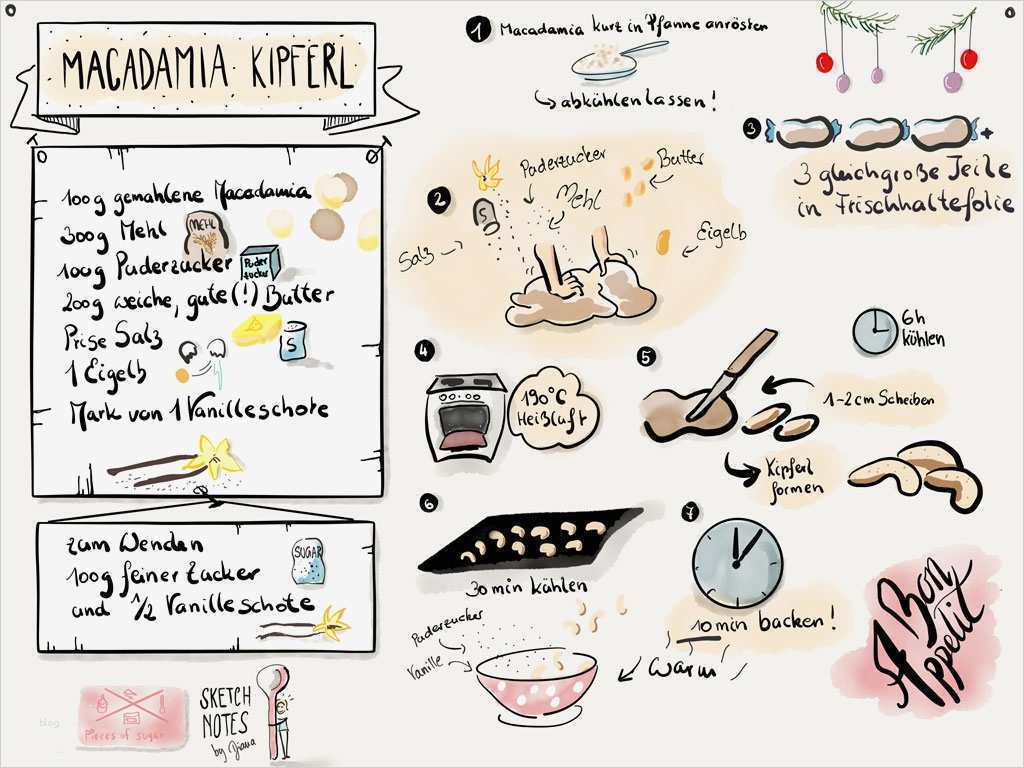 MACADAMIA KIPFERL
100g gemahlene Macadamia
300g Mehl
MEHL
100g Puderzucker
Puder
zucker
200g weiche, gute (!) Butter
Prise Salz
S
1 Eigelb
Mark von 1 Vanilleschote
zum Wenden
100g feiner Zucker
SUGAR
und 1/2 Vanilleschote
blog
Pieces of sugar
SKETCH
NOTES
by Diana
1 Macadamia kurt in Pfanne anrösten
abkühlen lassen!
2
Puderzucker
Butter
Mehl
S
Salz
Eigelb
3
+
3 gleichgroße Teile
in Frischhaltefolie
6h
kühlen
4
190°C
Heißluft
5
1-2cm Scheiben
Kipferl
formen
6
30min kühlen
Puderzucker
Vanille
warm
7
10min backen!
Bon
Appetit